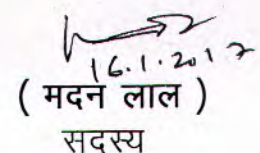 16.1.2017
( मदन लाल )
सदस्य